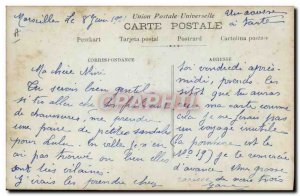 Marseille le 8 Juin
Un avion
à Tante
Union Postale Universelle
CARTE POSTALE
Postkart Tarjeta postal Postcard Cartolina postale
CORRESPONDANCE
ADRESSE
Ma chère Nini
Tu serais bien gentille
si tu allais chez le
de chaussures, me prendre
une paire de petites sandales
pour . En ville, je n'en
ai pas trouvé ou bien elles
sont très vilaines.
J'irais les prendre chez
toi vendredi après-
midi, prends les
sitôt que tu auras
ma carte comme
cela je ne ferais pas
un voyage inutile
la pointure est le
No 19) je te remercie
d'avance. Une grosse
caresse de mon